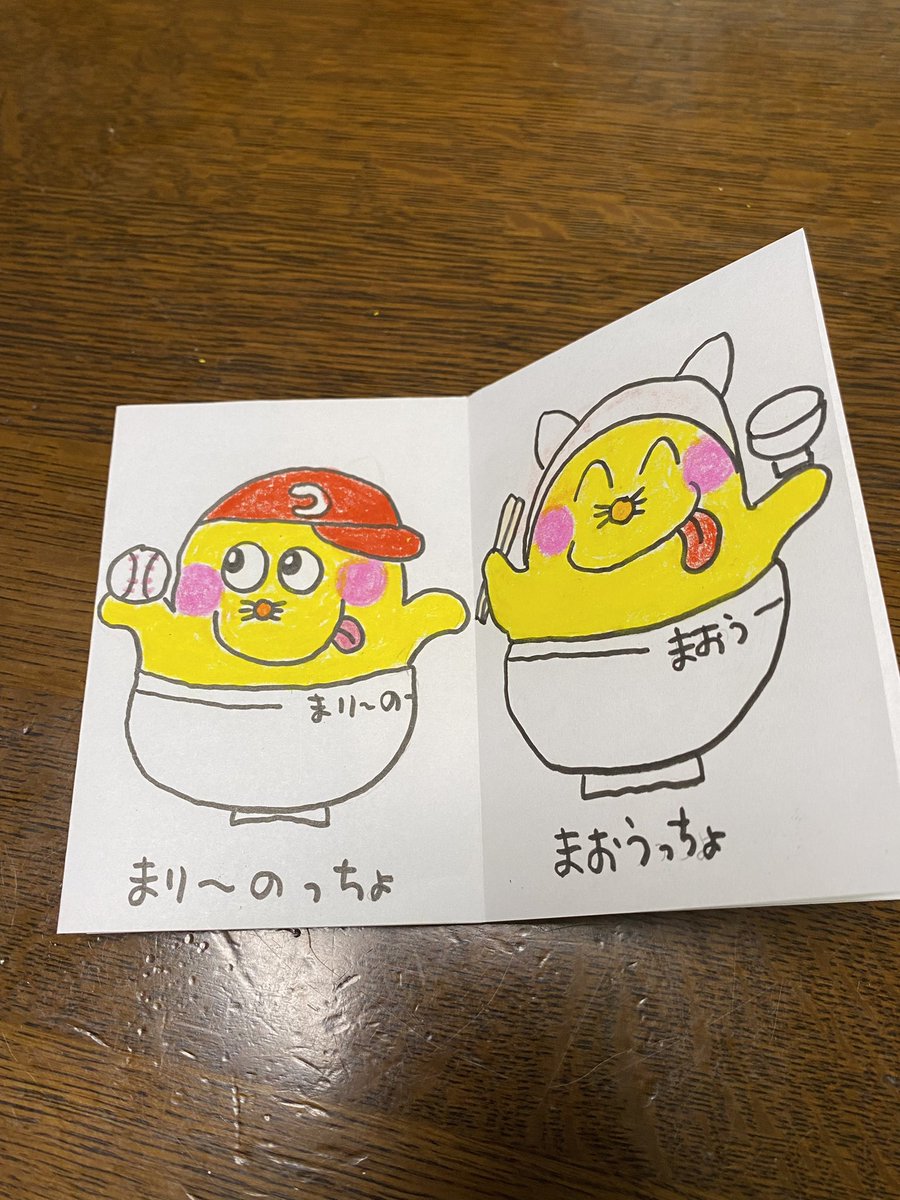 つ
まり〜の
まり〜のっちょ
まおう
まおうっちょ